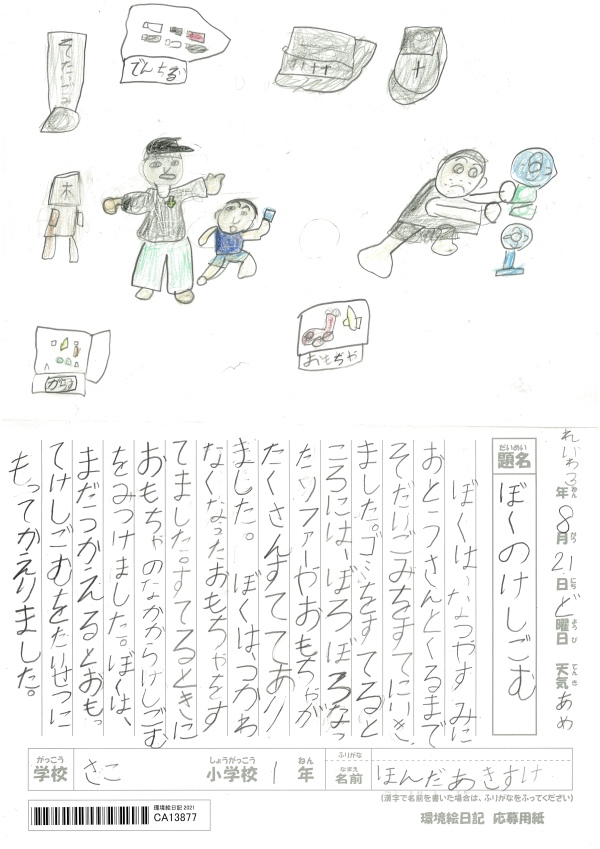 そだいごみ
でんちる
木
がらす
おもちゃ
れいわ3年8月21日ど曜日 天気あめ
題名
だいめい
ぼくのけしごむ
ぼくは、なつやすみに
おとうさんとくるまで
そだいごみをすてにいき
ました。ゴミをすてると
ころには、ぼろぼろなっ
たソファーやおもちゃが
たくさんすててあり
ました。ぼくは、つかわ
なくなったおもちゃをす
てました。すてるときに
おもちゃのなかからけしごむ
をみつけました。ぼくは、
まだつかえるとおもっ
てけしごむをたいせつに
もってかえりました。
がっこう しょうがっこう ねん
学校 さこ 小学校 1年
ふりがな
なまえ
名前 ほんだあきすけ
(漢字で名前を書いた場合は、ふりがなをふってください)
環境絵日記2021
CA13877
環境絵日記 応募用紙